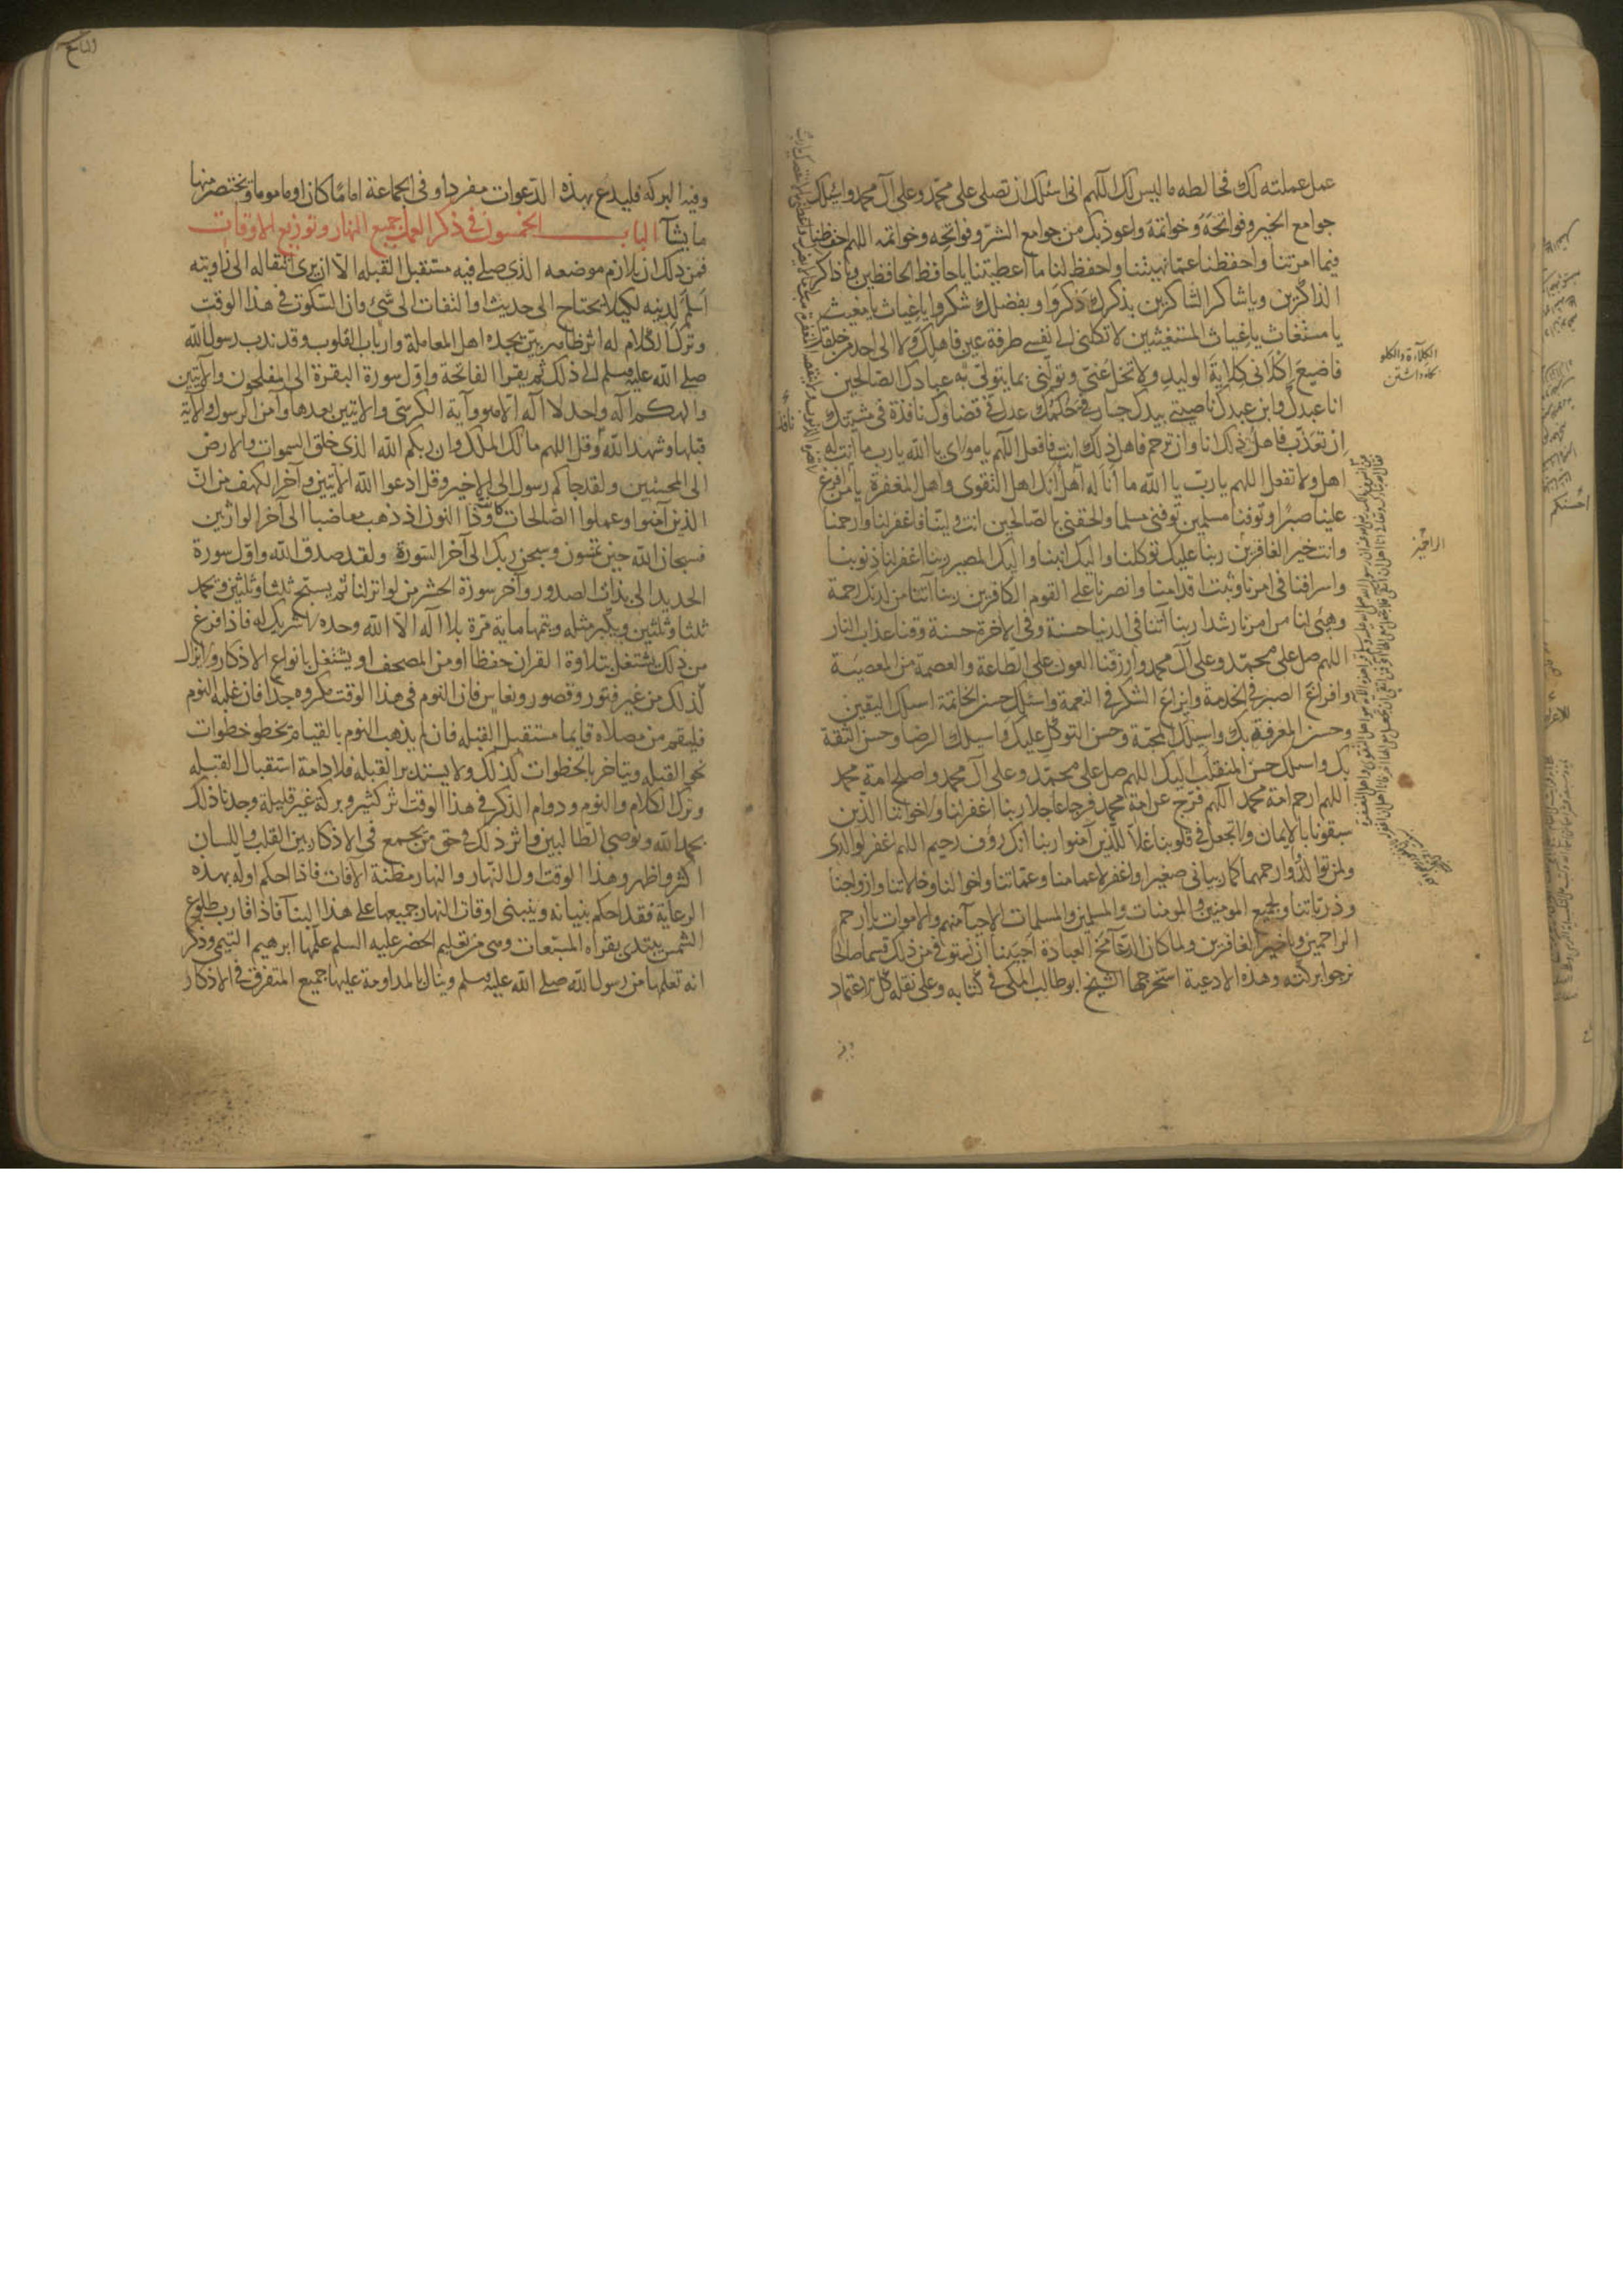 عمل عملته لك فخالطه ما ليس لك اللهم انى اسئلك ان تصلى على محمد وعلى آل محمد واسئلك
جوامع الخير وفواتحه وخواتمه واعوذ بك من جوامع الشر وفواتحه وخواتمه اللهم احفظنا
فيما امرتنا واحفظنا عما نهيتنا واحفظ لنا ما اعطيتنا يا حافظ الحافظين ويا ذاكر
الذاكرين ويا شاكر الشاكرين بذكرك ذكروا وبفضلك شكروا يا غياث يا مغيث
يا مستغاث يا غياث المستغيثين لا تكلنى الى نفسى طرفة عين فاهلك ولا الى احد من خلقك
فاضيع اكلانى كلاية الوليد ولا تخل عنى وتولنى بما يتولى به عبادك الصالحين
انا عبدك وابن عبدك ناصيتى بيدك جار فى حكمك عدل فى قضاؤك نافذة فى مشيتك
ان تعذب فاهل ذلك انا وان ترحم فاهل ذلك انت فافعل اللهم يا مولاى يا الله يا رب ما انت له
اهل ولا تفعل اللهم يا رب يا الله ما انا له اهل انك اهل التقوى واهل المغفرة يا من افرغ
علينا صبرا وتوفنا مسلمين توفنى مسلما والحقنى بالصالحين انت ولينا فاغفر لنا وارحمنا
وانت خير الغافرين ربنا عليك توكلنا واليك انبنا واليك المصير ربنا اغفر لنا ذنوبنا
واسرافنا فى امرنا وثبت اقدامنا وانصرنا على القوم الكافرين ربنا آتنا من لدنك رحمة
وهيئ لنا من امرنا رشدا ربنا آتنا فى الدنيا حسنة وفى الاخرة حسنة وقنا عذاب النار
اللهم صل على محمد وعلى آل محمد وارزقنا العون على الطاعة والعصمة من المعصية
وافراغ الصبر فى الخدمة وايزاع الشكر فى النعمة واسئلك حسن الخاتمة اسلك اليقين
وحسن المعرفة بك واسيلك المحبة وحسن التوكل عليك واسيلك الرضا وحسن الثقة
بك واسلك حسن المنقلب اليك اللهم صل على محمد وعلى آل محمد واصلح امة محمد
اللهم ارحم امة محمد اللهم فرج عن امة محمد فرجا عاجلا ربنا اغفر لنا ولاخواننا الذين
سبقونا بالايمان ولا تجعل فى قلوبنا غلا للذين آمنوا ربنا انك رؤف رحيم اللهم اغفر لوالدى
ولمن توالدوا وارحمهما كما ربيانى صغيرا واغفر لاعمامنا وعماتنا واخوالنا وخالاتنا وازواجنا
وذرياتنا ولجميع المومنين والمومنات والمسلمين والمسلمات الاحيآ منهم والاموات يا ارحم
الراحمين ويا خير الغافرين ولما كان الدعآ مخ العبادة احببنا ان نستوفى من ذلك قسما صالحا
نرجوا بركته وهذه الادعية استخرجها الشيخ ابو طالب المكى فى كتابه وعلى نقله كل الاعتماد
وفيه
الكلآءة والكلو
نكاه داشتن
الراحمين
نافذ
وفيه البركة فليدع بهذه الدعوات منفردا وفى الجماعة اماما كان او ماموما ويختصر منها
ما يشآ الباب الخمسون فى ذكر العمل جميع النهار وتوزيع الاوقات
فمن ذلك ان يلازم موضعه الذى صلى فيه مستقبل القبلة الا ان يرى انتقاله الى زاويته
اسلم لدينه لكيلا يحتاج الى حديث او التفات الى شئ فان السكوت فى هذا الوقت
وترك الكلام له اثر ظاهر بين يجده اهل المعاملة وارباب القلوب وقد ندب رسول الله
صلى الله عليه وسلم الى ذلك ثم يقرا الفاتحة واول سورة البقرة الى المفلحون والايتين
والهكم اله واحد لا اله الا هو وآية الكرسى والايتين بعدها وآمن الرسول والآية
قبلها وشهد الله وقل اللهم مالك الملك وان ربكم الله الذى خلق السموات والارض
الى المحسنين ولقد جاكم رسول الى الاخير وقل ادعوا الله الايتين وآخر الكهف من ان
الذين آمنوا وعملوا الصالحات كانت وذا النون اذ ذهب مغاضبا الى آخر الوارثين
فسبحان الله حين تمسون وسبحان ربك الى آخر السورة ولقد صدق الله واول سورة
الحديد الى بذات الصدور وآخر سورة الحشر من لو انزلنا ثم يسبح ثلثا وثلثين ويحمد
ثلثا وثلثين ويكبر مثله ويتمها ماية مرة بلا اله الا الله وحده لا شريك له فاذا فرغ
من ذلك يشتغل بتلاوة القران حفظا او من المصحف او يشتغل بانواع الاذكار ولا يزال
كذلك من غير فتور وقصور ونعاس فان النوم فى هذا الوقت مكروه جدا فان غلبه النوم
فليقم من مصلاه قايما مستقبل القبلة فان لم يذهب النوم بالقيام يخطو خطوات
نحو القبلة ويتاخر بالخطوات كذلك ولا يستدبر القبلة فلادامة استقبال القبلة
وترك الكلام والنوم ودوام الذكر فى هذا الوقت اثر كثير وبركة غير قليلة وجدنا ذلك
بحمد الله ونوصى الطالبين واثر ذلك فى حق من يجمع فى الاذكار بين القلب واللسان
اكثر واظهر وهذا الوقت اول النهار والنهار مظنة الآفات فاذا احكم اوله بهذه
الرعاية فقد احكم بنيانه ويبتنى اوقات النهار جميعها على هذا البنآ فاذا قارب طلوع
الشمس يبتدى بقراة المسبعات وهى من تعليم الخضر عليه السلم علمها ابرهيم التيمى وذكر
انه تعلمها من رسول الله صلى الله عليه وسلم وينال بالمداومة عليها جميع المتفرق فى الاذكار